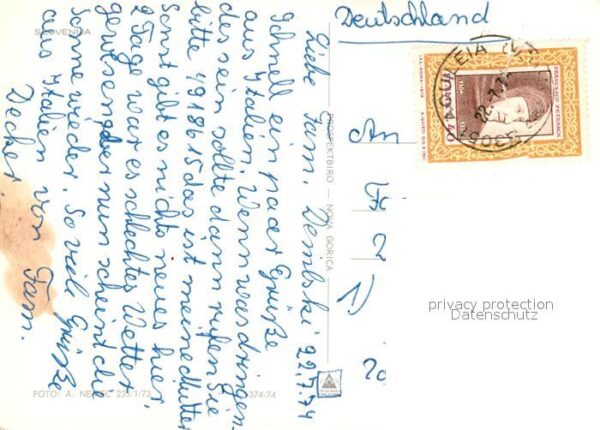 SLOVENIJA
Liebe Fam. Denilski 22.7.74
Schnell ein paar Grüße
aus Italien. Wenn was dringen-
des sein sollte dann rufen Sie
bitte 4918615 das ist meine Mutter
Sonst gibt es nichts neues hier.
2 Tage war es schlechtes Wetter
gewesen, aber nun scheint die
Sonne wieder. So viel Grüße
aus Italien von Fam.
Decker.
FOTO: A. 235-1/73
PROSPEKTBIRO — NOVA GORICA
374-74
Deutschland
FRANCESCO PETRARCA
AQUILEIA
22.7.74
An
Fa
2
1)
20
privacy protection
Datenschutz